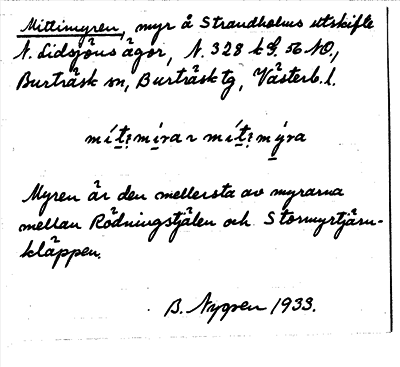 Mittimyren, myr å Strandholms utskifte
N. Lidsjöns ägor, N. 328 k Bl. 56 NO.,
Burträsk sn, Burträsk tg, Västerb. l.
Myren är den mellersta av myrarna
mellan Rödningstjälen och Stormyrtjärn-
kläppen.
B. Nygren 1933.